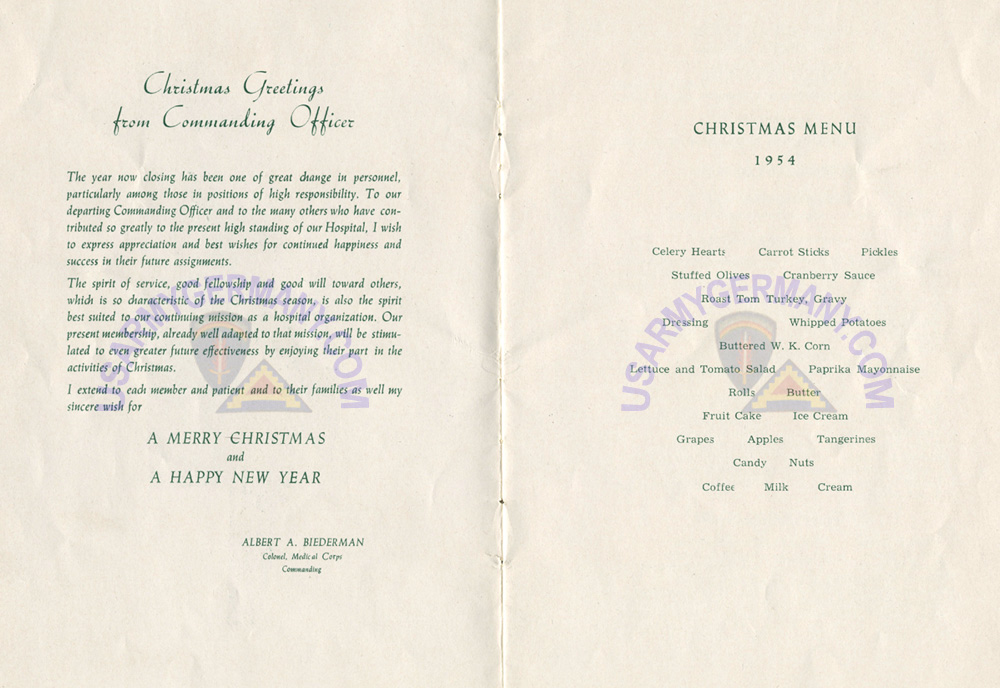 Christmas Greetings
from Commanding Officer
The year now closing has been one of great change in personnel,
particularly among those in positions of high responsibility. To our
departing Commanding Officer and to the many others who have con-
tributed so greatly to the present high standing of our Hospital, I wish
to express appreciation and best wishes for continued happiness and
success in their future assignments.
The spirit of service, good fellowship and good will toward others,
which is so characteristic of the Christmas season, is also the spirit
best suited to our continuing mission as a hospital organization. Our
present membership, already well adapted to that mission, will be stimu-
lated to even greater future effectiveness by enjoying their part in the
activities of Christmas.
I extend to each member and patient and to their families as well my
sincere wish for
A MERRY CHRISTMAS
and
A HAPPY NEW YEAR
ALBERT A. BIEDERMAN
Colonel, Medical Corps
Commanding
USARMYGERMANY.COM
CHRISTMAS MENU
1954
Celery Hearts Carrot Sticks Pickles
Stuffed Olives Cranberry Sauce
Roast Tom Turkey, Gravy
Dressing Whipped Potatoes
Buttered W. K. Corn
Lettuce and Tomato Salad Paprika Mayonnaise
Rolls Butter
Fruit Cake Ice Cream
Grapes Apples Tangerines
Candy Nuts
Coffee Milk Cream
USARMYGERMANY.COM